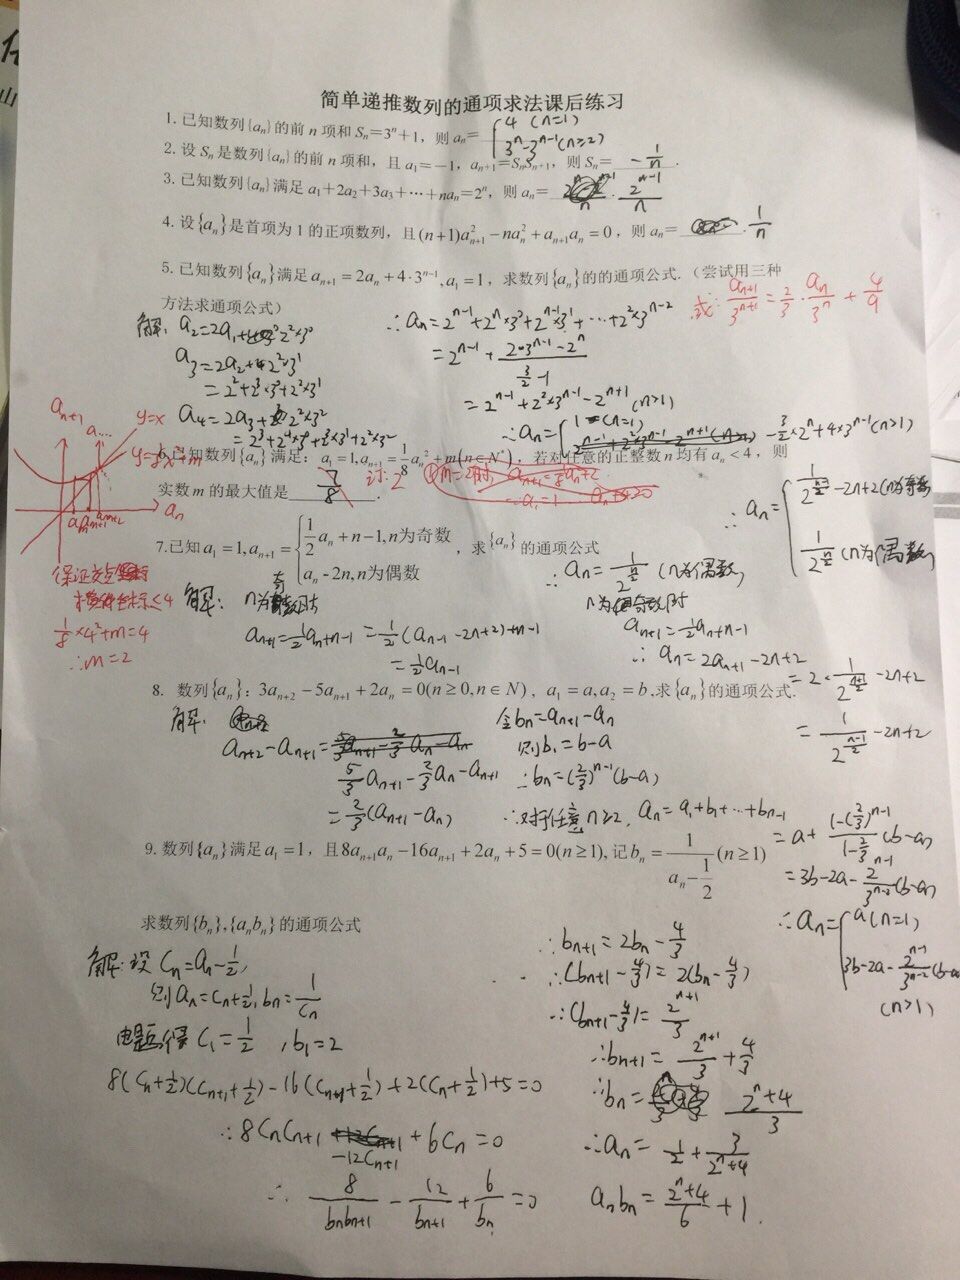 简单递推数列的通项求法课后练习
1. 已知数列{aₙ}的前 n 项和 Sₙ=3ⁿ+1，则 aₙ= { 4 (n=1)
3ⁿ-3ⁿ⁻¹(n≥2)
2. 设 Sₙ 是数列{aₙ}的前 n 项和，且 a₁=-1，aₙ₊₁=SₙSₙ₊₁，则 Sₙ= -1/n .
3. 已知数列{aₙ}满足 a₁+2a₂+3a₃+⋯+naₙ=2ⁿ，则 aₙ= . 2ⁿ⁻¹/n
4. 设{aₙ}是首项为 1 的正项数列，且(n+1)a²ₙ₊₁-na²ₙ+aₙ₊₁aₙ=0，则 aₙ= . 1/n
5. 已知数列{aₙ}满足 aₙ₊₁=2aₙ+4·3ⁿ⁻¹,a₁=1，求数列{aₙ}的的通项公式.（尝试用三种
方法求通项公式）
或: aₙ₊₁/3ⁿ⁺¹ = 2/3 · aₙ/3ⁿ + 4/9
解: a₂=2a₁+2²×3⁰
a₃=2a₂+2²×3¹
=2²+2³×3⁰+2²×3¹
a₄=2a₃+2²×3²
=2³+2⁴×3⁰+2³×3¹+2²×3²
∴aₙ=2ⁿ⁻¹+2ⁿ×3⁰+2ⁿ⁻¹×3¹+⋯+2²×3ⁿ⁻²
=2ⁿ⁻¹+ (2·3ⁿ⁻¹-2ⁿ)/(3/2 -1)
=2ⁿ⁻¹+2²×3ⁿ⁻¹-2ⁿ⁺¹ (n>1)
∴aₙ= { 1 (n=1)
2ⁿ⁻¹+2²×3ⁿ⁻¹-2ⁿ⁺¹(n>1) -3/2×2ⁿ+4×3ⁿ⁻¹(n>1)
6. 已知数列{aₙ}满足：a₁=1,aₙ₊₁=1/8 aₙ²+m(n∈N*)，若对任意的正整数 n 均有 aₙ<4，则
实数 m 的最大值是 7/8 . 订: 2
①m=2时, aₙ₊₁=1/8 aₙ²+2
∵a₁=1
aₙ₊₁
y=x
y=1/8x²+m
aₘ aₘ₊₁ aₘ₊₂
aₙ
保证交点
横坐标≤4
1/8×4²+m=4
∴m=2
7.已知 a₁=1,aₙ₊₁= { 1/2 aₙ+n-1,n为奇数
aₙ-2n,n为偶数 ，求{aₙ}的通项公式
解: n为奇数时
aₙ₊₁=1/2aₙ+n-1 =1/2(aₙ₋₁-2n+2)+n-1
=1/2aₙ₋₁
∴aₙ= 1/2^(n/2) (n为偶数)
n为奇数时
aₙ₊₁=1/2aₙ+n-1
∴aₙ=2aₙ₊₁-2n+2
=2·1/2^((n+1)/2) -2n+2
= 1/2^((n-1)/2) -2n+2
∴aₙ= { 1/2^((n-1)/2) -2n+2(n为奇数)
1/2^(n/2) (n为偶数)
8. 数列{aₙ}：3aₙ₊₂-5aₙ₊₁+2aₙ=0(n≥0,n∈N)，a₁=a,a₂=b,求{aₙ}的通项公式.
解:
aₙ₊₂-aₙ₊₁= 5/3aₙ₊₁-2/3aₙ-aₙ
5/3aₙ₊₁-2/3aₙ-aₙ₊₁
=2/3(aₙ₊₁-aₙ)
令bₙ=aₙ₊₁-aₙ
则b₁=b-a
∴bₙ=(2/3)ⁿ⁻¹(b-a)
∴对于任意n≥2, aₙ=a₁+b₁+⋯+bₙ₋₁
=a+ (1-(2/3)ⁿ⁻¹)/(1-2/3) (b-a)
=3b-2a- 2ⁿ⁻¹/3ⁿ⁻² (b-a)
∴aₙ= { a(n=1)
3b-2a- 2ⁿ⁻¹/3ⁿ⁻² (b-a)
(n>1)
9. 数列{aₙ}满足 a₁=1，且 8aₙ₊₁aₙ-16aₙ₊₁+2aₙ+5=0(n≥1),记 bₙ= 1/(aₙ-1/2) (n≥1)
求数列{bₙ},{aₙbₙ}的通项公式
解: 设 Cₙ=aₙ-1/2,
则 aₙ=Cₙ+1/2, bₙ=1/Cₙ
由题意得 C₁=1/2 , b₁=2
8(Cₙ+1/2)(Cₙ₊₁+1/2)-16(Cₙ₊₁+1/2)+2(Cₙ+1/2)+5=0
∴8CₙCₙ₊₁ -12Cₙ₊₁ +6Cₙ=0
∴ 8/(bₙbₙ₊₁) - 12/bₙ₊₁ + 6/bₙ =0
∴bₙ₊₁=2bₙ-4/3
∴(bₙ₊₁-4/3)=2(bₙ-4/3)
∴(bₙ₊₁-4/3)= 2ⁿ⁺¹/3
∴bₙ₊₁= 2ⁿ⁺¹/3 + 4/3
∴bₙ= (2ⁿ+4)/3
∴aₙ= 1/2 + 3/(2ⁿ+4)
aₙbₙ= (2ⁿ+4)/6 +1.